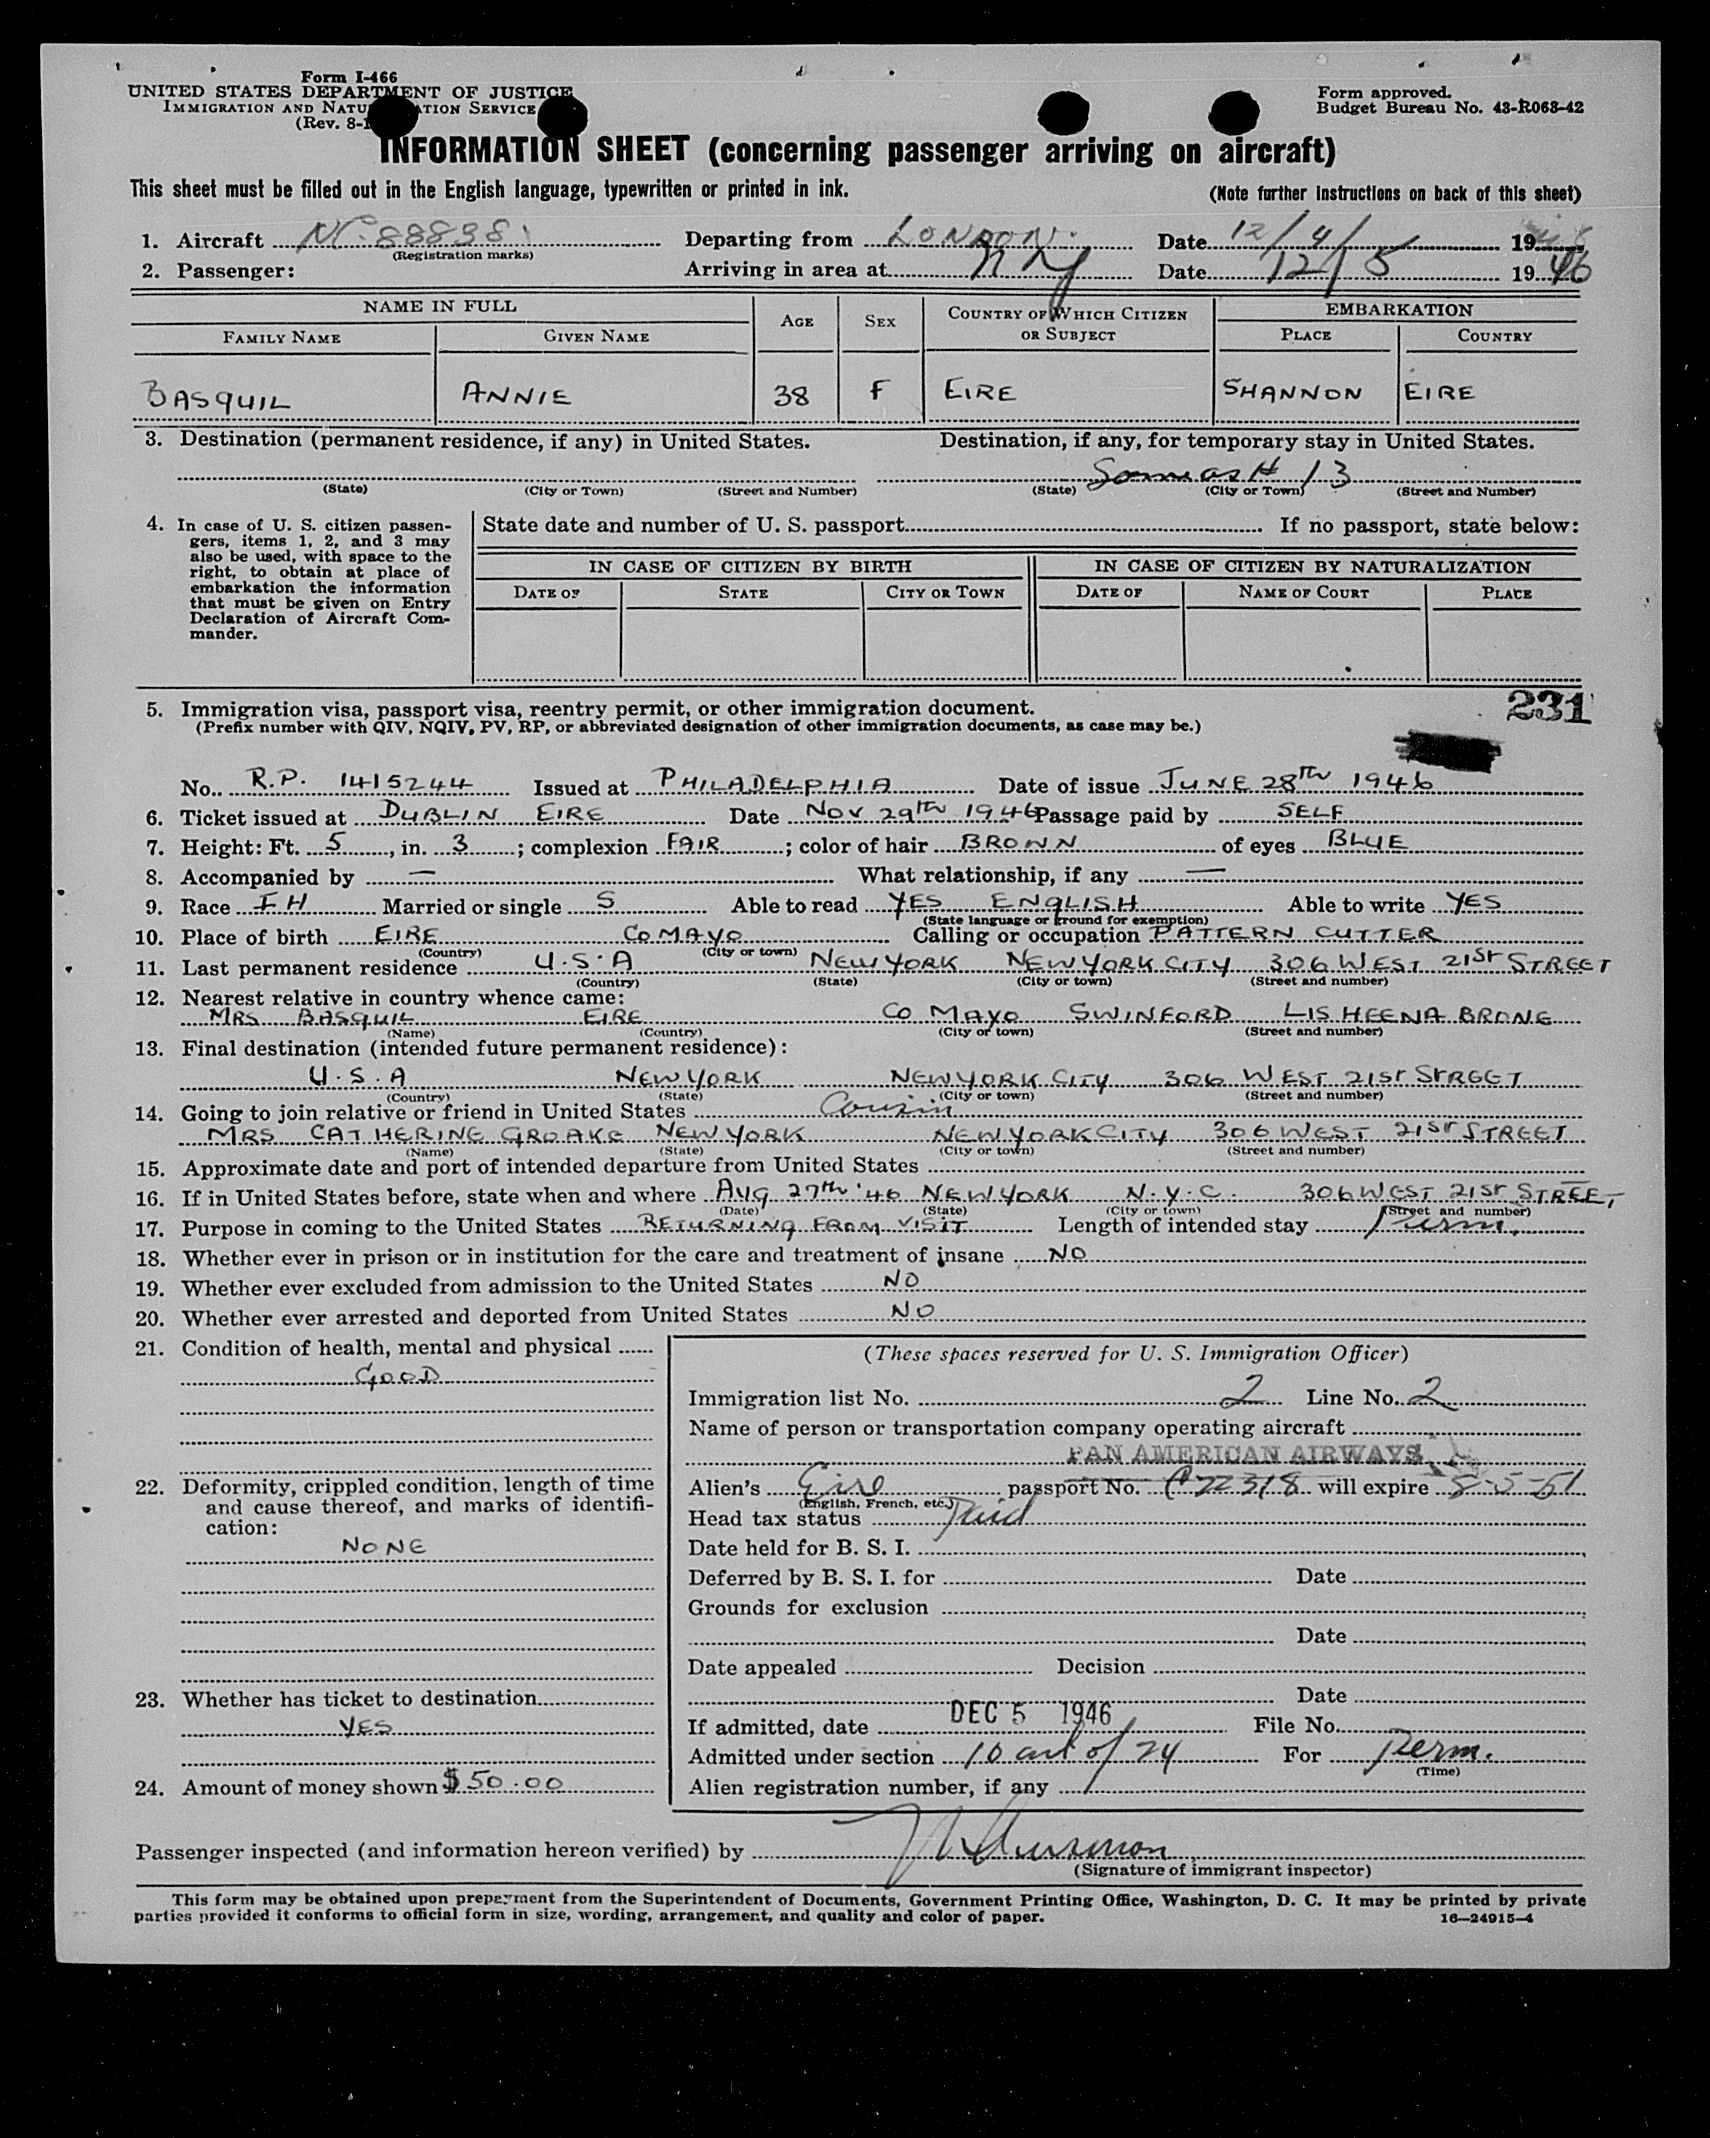 Form I-466
UNITED STATES DEPARTMENT OF JUSTICE
IMMIGRATION AND NATURALIZATION SERVICE
(Rev. 8-1
Form approved.
Budget Bureau No. 43-R063-42
INFORMATION SHEET (concerning passenger arriving on aircraft)
This sheet must be filled out in the English language, typewritten or printed in ink. (Note further instructions on back of this sheet)
1. Aircraft NC 88838 Departing from LONDON. Date 12/4/ 19
(Registration marks)
2. Passenger: Arriving in area at N Y Date 12/5 1946
NAME IN FULL AGE SEX COUNTRY OF WHICH CITIZEN OR SUBJECT EMBARKATION
FAMILY NAME GIVEN NAME PLACE COUNTRY
BASQUIL ANNIE 38 F EIRE SHANNON EIRE
3. Destination (permanent residence, if any) in United States. Destination, if any, for temporary stay in United States.
Same as # 13
(State) (City or Town) (Street and Number) (State) (City or Town) (Street and Number)
4. In case of U. S. citizen passen-
gers, items 1, 2, and 3 may
also be used, with space to the
right, to obtain at place of
embarkation the information
that must be given on Entry
Declaration of Aircraft Com-
mander.
State date and number of U. S. passport If no passport, state below:
IN CASE OF CITIZEN BY BIRTH IN CASE OF CITIZEN BY NATURALIZATION
DATE OF STATE CITY OR TOWN DATE OF NAME OF COURT PLACE
231
5. Immigration visa, passport visa, reentry permit, or other immigration document.
(Prefix number with QIV, NQIV, PV, RP, or abbreviated designation of other immigration documents, as case may be.)
No. R.P. 1415244 Issued at PHILADELPHIA Date of issue JUNE 28TH 1946
6. Ticket issued at DUBLIN EIRE Date NOV 29TH 1946 Passage paid by SELF
7. Height: Ft. 5, in. 3; complexion FAIR; color of hair BROWN of eyes BLUE
8. Accompanied by — What relationship, if any —
9. Race IH Married or single S Able to read YES ENGLISH Able to write YES
(State language or ground for exemption)
10. Place of birth EIRE CO MAYO Calling or occupation PATTERN CUTTER
(Country) (City or town)
11. Last permanent residence U.S.A NEW YORK NEW YORK CITY 306 WEST 21ST STREET
(Country) (State) (City or town) (Street and number)
12. Nearest relative in country whence came:
MRS BASQUIL EIRE CO MAYO SWINFORD LISHEENABRONE
(Name) (Country) (City or town) (Street and number)
13. Final destination (intended future permanent residence):
U.S.A NEW YORK NEW YORK CITY 306 WEST 21ST STREET
(Country) (State) (City or town) (Street and number)
14. Going to join relative or friend in United States Cousin
MRS CATHERINE GROAKE NEW YORK NEW YORK CITY 306 WEST 21ST STREET
(Name) (State) (City or town) (Street and number)
15. Approximate date and port of intended departure from United States
16. If in United States before, state when and where AUG 27th '46 NEW YORK N.Y.C. 306 WEST 21ST STREET
(Date) (State) (City or town) (Street and number)
17. Purpose in coming to the United States RETURNING FROM VISIT Length of intended stay Perm.
18. Whether ever in prison or in institution for the care and treatment of insane NO
19. Whether ever excluded from admission to the United States NO
20. Whether ever arrested and deported from United States NO
21. Condition of health, mental and physical
GOOD
22. Deformity, crippled condition, length of time
and cause thereof, and marks of identifi-
cation:
NONE
23. Whether has ticket to destination
YES
24. Amount of money shown $50.00
(These spaces reserved for U. S. Immigration Officer)
Immigration list No. 2 Line No. 2
Name of person or transportation company operating aircraft
PAN AMERICAN AIRWAYS,
Alien's Eire passport No. C 22318 will expire 8-5-51
(English, French, etc.)
Head tax status Paid
Date held for B. S. I.
Deferred by B. S. I. for Date
Grounds for exclusion
Date
Date appealed Decision
Date
If admitted, date DEC 5 1946 File No.
Admitted under section 10 act of 24 For Perm.
(Time)
Alien registration number, if any
Passenger inspected (and information hereon verified) by
(Signature of immigrant inspector)
This form may be obtained upon prepayment from the Superintendent of Documents, Government Printing Office, Washington, D. C. It may be printed by private
parties provided it conforms to official form in size, wording, arrangement, and quality and color of paper. 16—24915-4